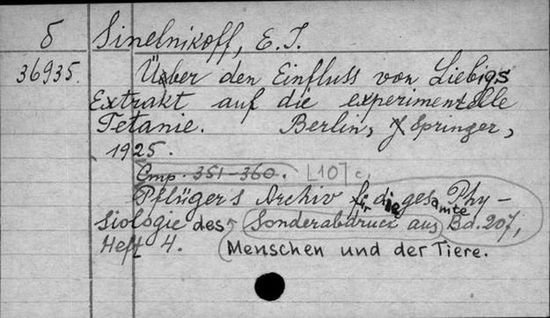 б Sinelnikoff, E. I.
36935. Über den Einfluss von Liebigs
Extrakt auf die experimentelle
Tetanie. Berlin, J Springer,
1925.
Стр. 351-360. [10] с.
Pflügers Archiv für die gesamte Phy-
siologie des Sonderabdruck aus Bd. 207,
Heft 4. Menschen und der Tiere.